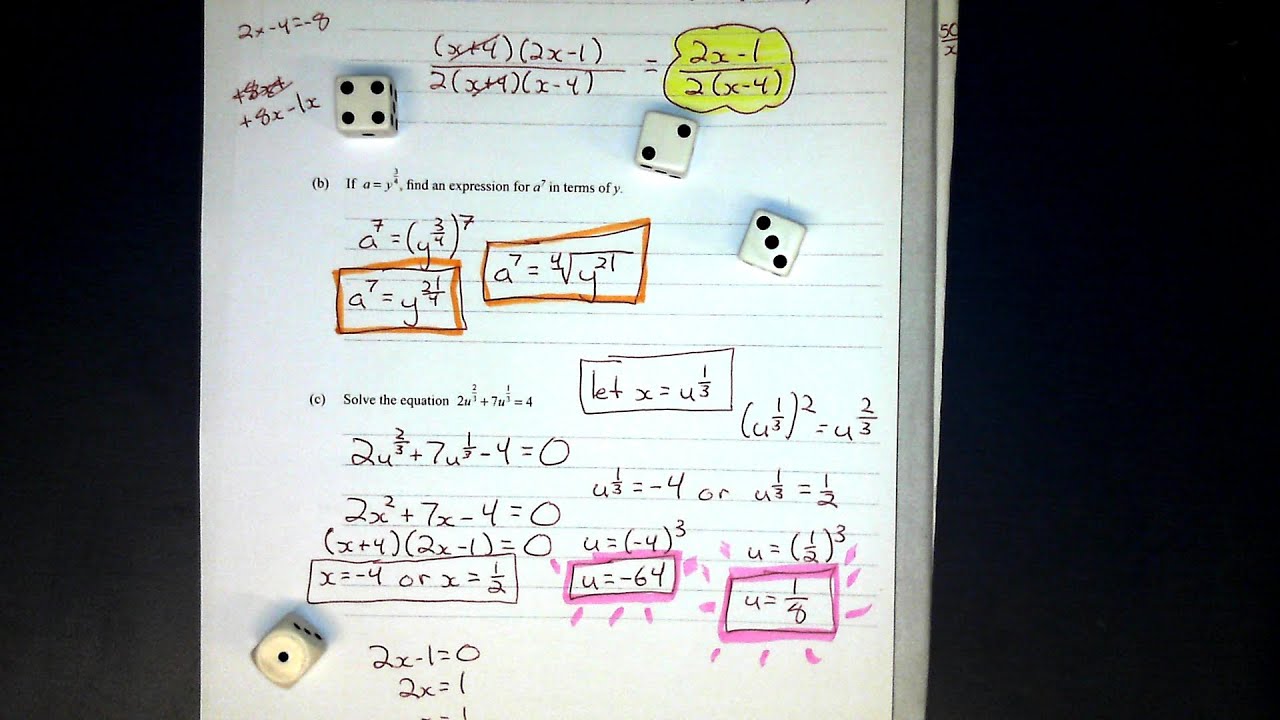 2x-4=-8
50/x
(x+4)(2x-1) / 2(x+4)(x-4) = 2x-1 / 2(x-4)
+8x-1x
(b) If a = y^(3/4), find an expression for a^7 in terms of y.
a^7 = (y^(3/4))^7
a^7 = ∜(y^21)
a^7 = y^(21/4)
let x = u^(1/3)
(c) Solve the equation 2u^(2/3) + 7u^(1/3) = 4
(u^(1/3))^2 = u^(2/3)
2u^(2/3) + 7u^(1/3) - 4 = 0
u^(1/3) = -4 or u^(1/3) = 1/2
2x² + 7x - 4 = 0
(x+4)(2x-1) = 0
u = (-4)^3
u = (1/2)^3
x = -4 or x = 1/2
u = -64
u = 1/8
2x-1=0
2x=1